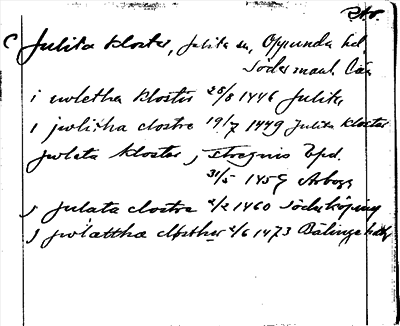 C Julita kloster, Julita sn, Oppunda hd,
Södermanl. län
i iwletha kloster 28/8 1446 Julita
i jwlitha clostre 19/7 1449 Julita kloster
jwleta kloster j stregnis bpd.
31/5 1459 Arboga
j julata clostre 2/2 1460 Söderköping
j jwlættha closther 2/6 1473 Bälinge